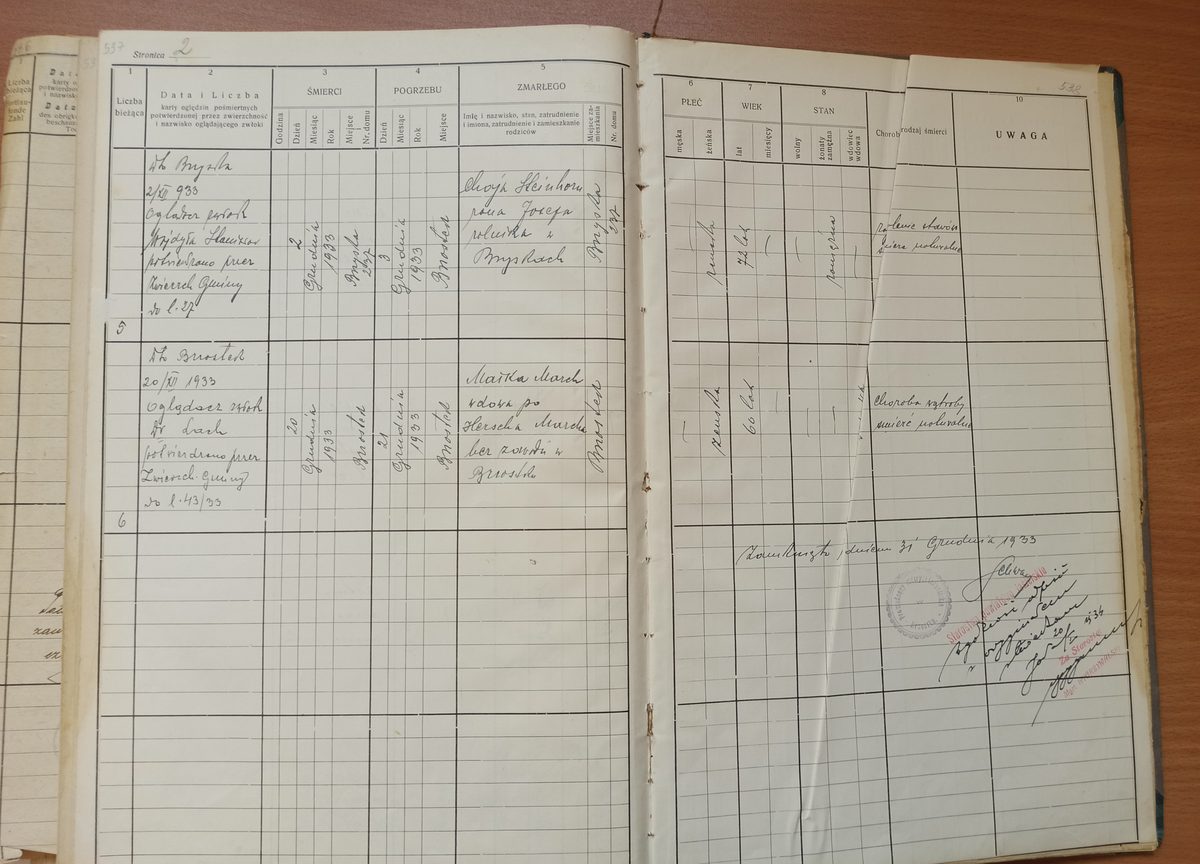 537
Stronica 2
1 2 3 4 5
Liczba bieżąca
Data i Liczba
karty oględzin pośmiertnych
potwierdzonej przez zwierzchność
i nazwisko oglądającego zwłoki
ŚMIERCI
Godzina
Dzień
Miesiąc
Rok
Miejsce i Nr. domu
POGRZEBU
Dzień
Miesiąc
Rok
Miejsce
ZMARŁEGO
Imię i nazwisko, stan, zatrudnienie
i imiona, zatrudnienie i zamieszkanie
rodziców
Miejsce zamieszkania
Nr. domu
538
6 7 8 10
PŁEĆ
męska
żeńska
WIEK
lat
miesięcy
STAN
wolny
żonaty zamężna
wdowiec wdowa
Chorob
rodzaj śmierci
UWAGA
5
Dto Bryska
2/XII 933
Oglądacz zwłok
Wojdyła Stanisław
potwierdzono przez
Zwierzch Gminy
do l. 27
2
Grudnia
1933
Bryska
237
3
Grudnia
1933
Brostek
Chaja Steinhorn
żona Josefa
rolnika z
Bryskach
Bryska
237
żeńska
72 lat
zamężna
stawów
śmierć naturalna
6
Dto Brostek
20/XII 1933
Oglądacz zwłok
Dr Lach
potwierdzono przez
Zwierzch. Gminy
do l. 43/33
20
Grudnia
1933
Brostek
21
Grudnia
1933
Brostek
Małka March
wdowa po
Herschu March
bez zawodu w
Brostku
Brostek
żeńska
60 lat
Choroba wątroby
śmierć naturalna
Zamknięto, dniem 31 Grudnia 1933
Starostwo powiatowe
Zgodność odpisu
z oryginałem
20/ 1934
Za Starostę